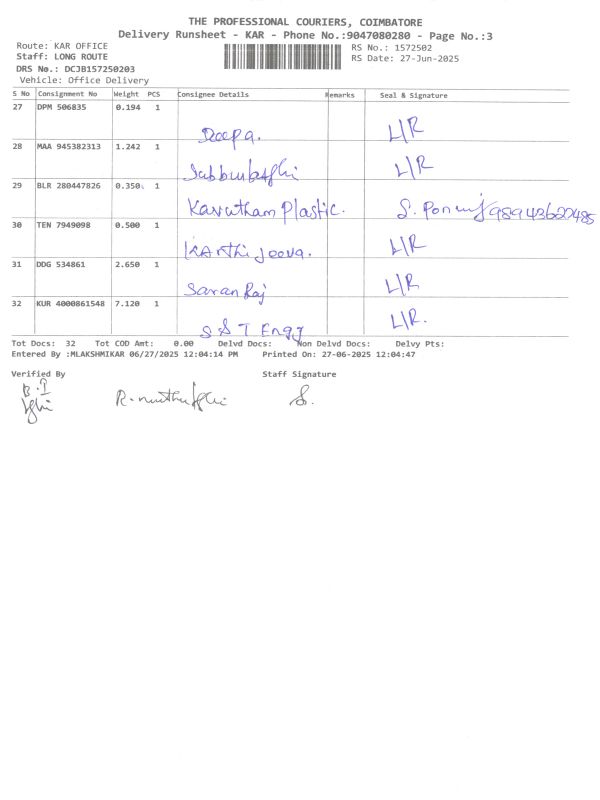 THE PROFESSIONAL COURIERS, COIMBATORE
Delivery Runsheet - KAR - Phone No.:9047080280 - Page No.:3
Route: KAR OFFICE
RS No.: 1572502
Staff: LONG ROUTE
RS Date: 27-Jun-2025
DRS No.: DCJB157250203
Vehicle: Office Delivery
S No Consignment No Weight PCS Consignee Details Remarks Seal & Signature
27 DPM 506835 0.194 1
Deepa. L/R
28 MAA 945382313 1.242 1
L/R
29 BLR 280447826 0.350 1
Plastic. S.
30 TEN 7949098 0.500 1
Karthi Jeeva. L/R
31 DDG 534861 2.650 1
Saran Raj L/R
32 KUR 4000861548 7.120 1
S S T Engg L/R.
Tot Docs: 32 Tot COD Amt: 0.00 Delvd Docs: Non Delvd Docs: Delvy Pts:
Entered By :MLAKSHMIKAR 06/27/2025 12:04:14 PM Printed On: 27-06-2025 12:04:47
Verified By Staff Signature